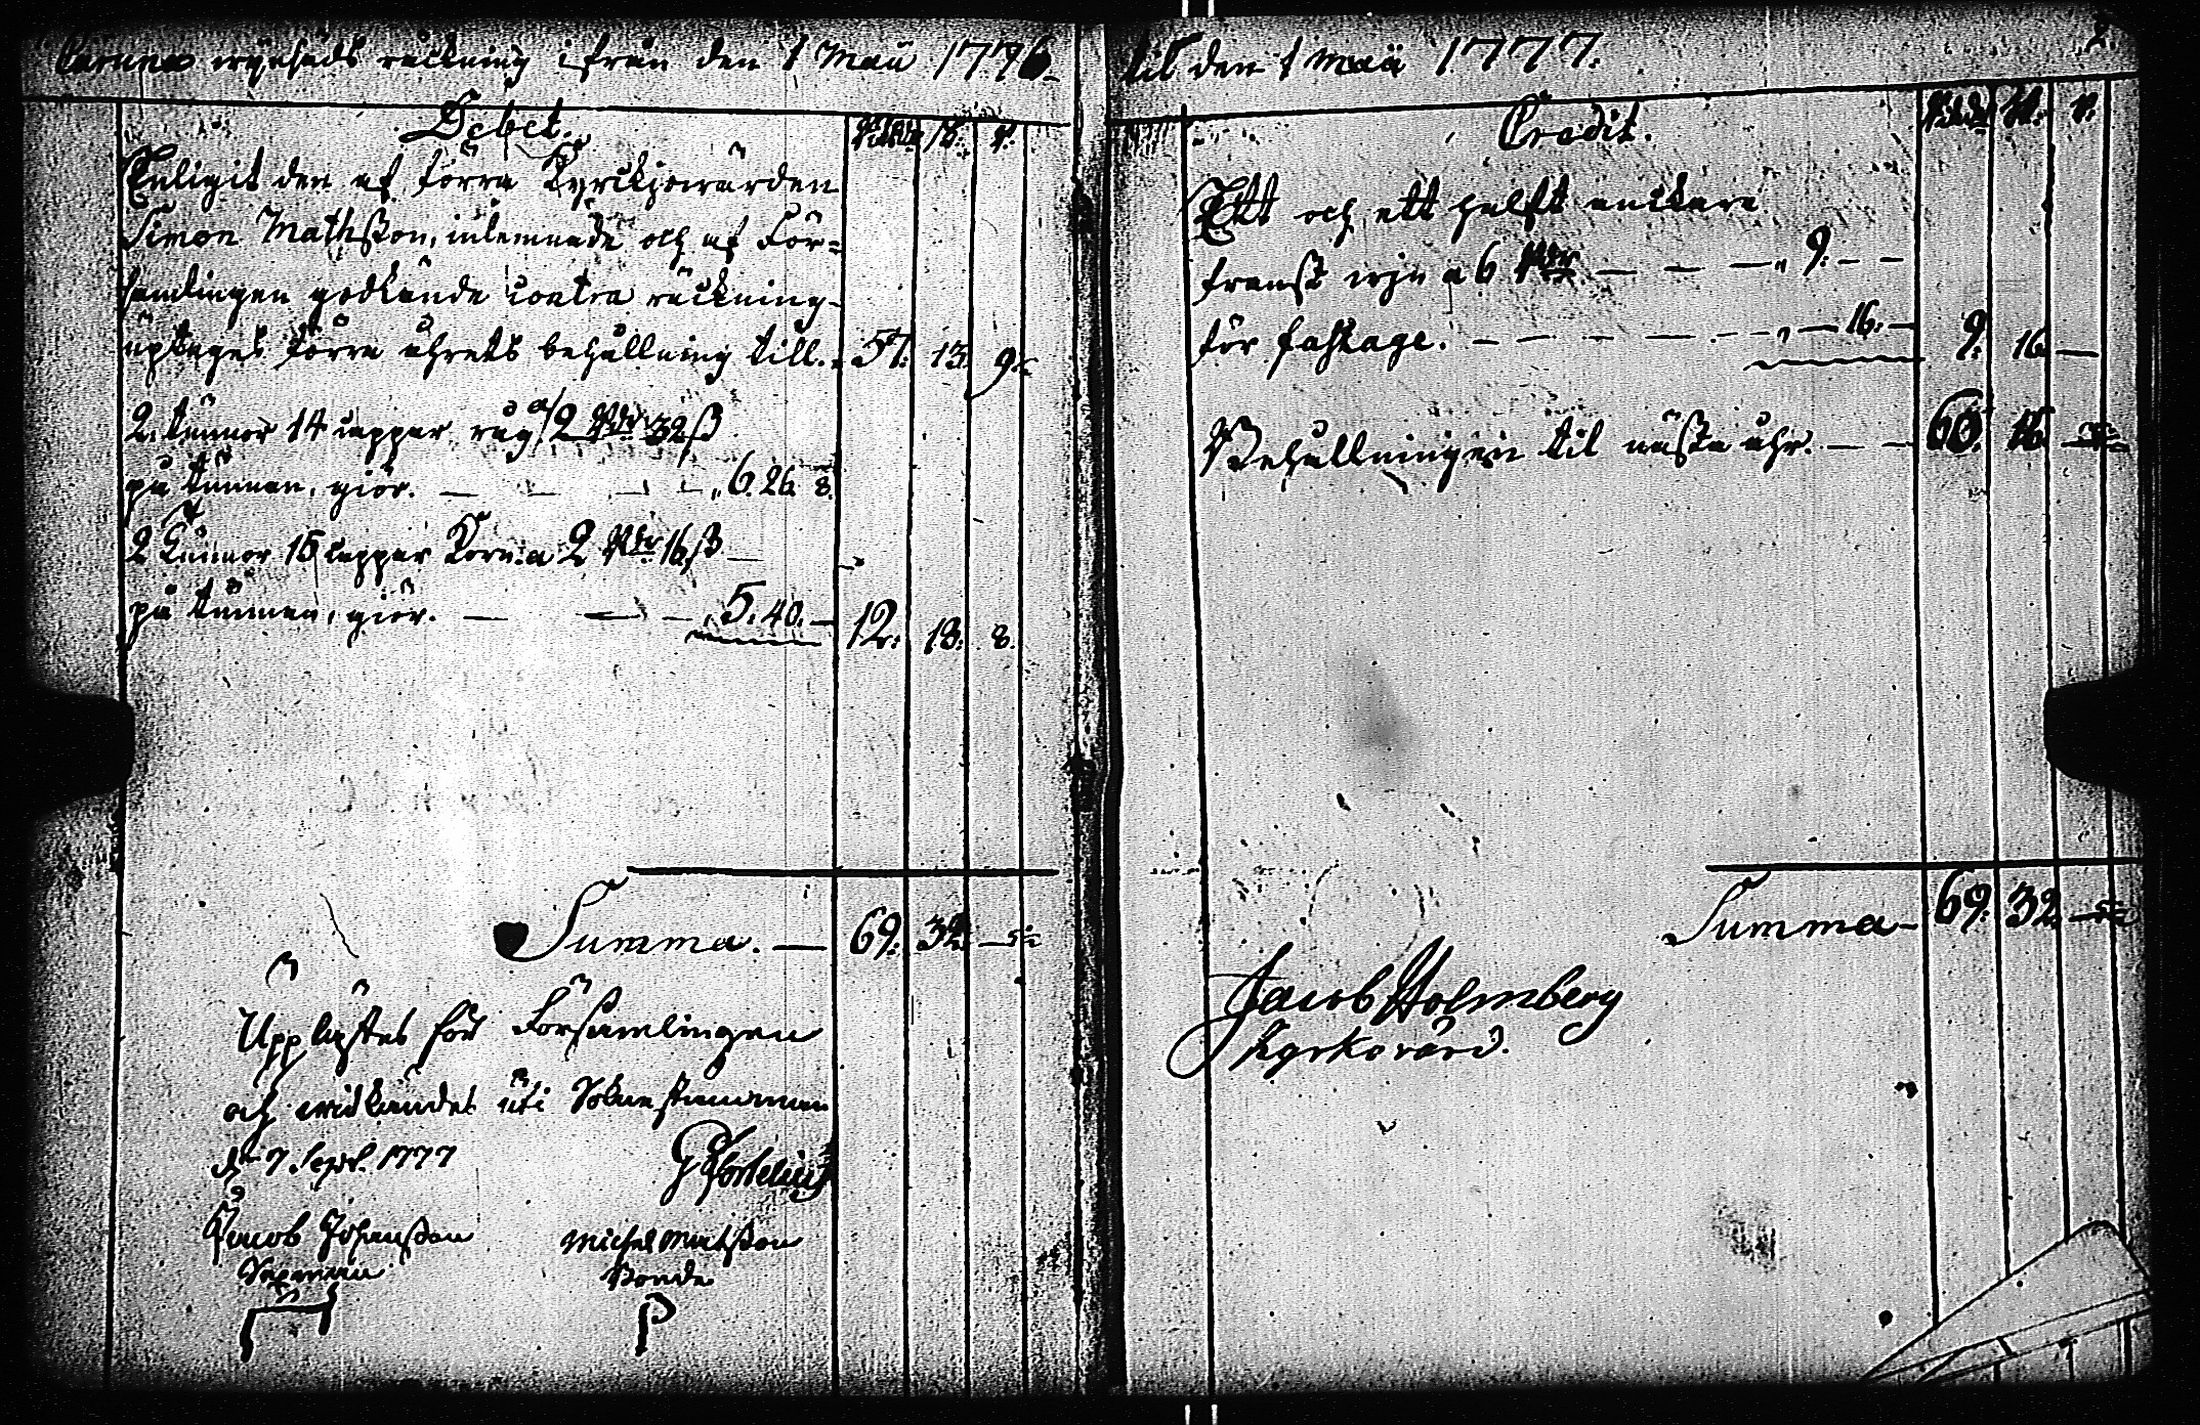 Caruna wijnhåds räckning ifrån den 1 Maii 1776
Debet.
Rdr ß r.
Enligit den af förra Kyrckjowärden
Simon Mathsson, inlemnade och af För=
samlingen godkände contra räckning-
uptages förra åhrets behållning till. 57. 13. 9.
2. tunnor 14 cappar råg a 2 Rdr 32 ß
på tunnan, giör. — — — — 6. 26. 8.
2 tunnor 16 cappar Korn a 2 Rdr 16 ß
på tunnan, giör. — — — 5. 40. — 12. 18. 8.
Summa. — 69. 32. —
Uppläстes för Församlingen
och widkändes uti Soknestämman
d. 7 Sept. 1777
Jacob Johansson
Michel Matsson
Bonde
til den 1 Maii 1777.
2.
Credit.
Rdr ß r.
Ett och ett halft anckare
franst wijn a 6 Rdr — — — 9. — —
för fastage. — — — — — — 16. — 9. 16 —
Behållningen til nästa åhr. — — 60. 16 —
Summa — 69. 32 —
Jacob Holmberg
Kyrkovärd.